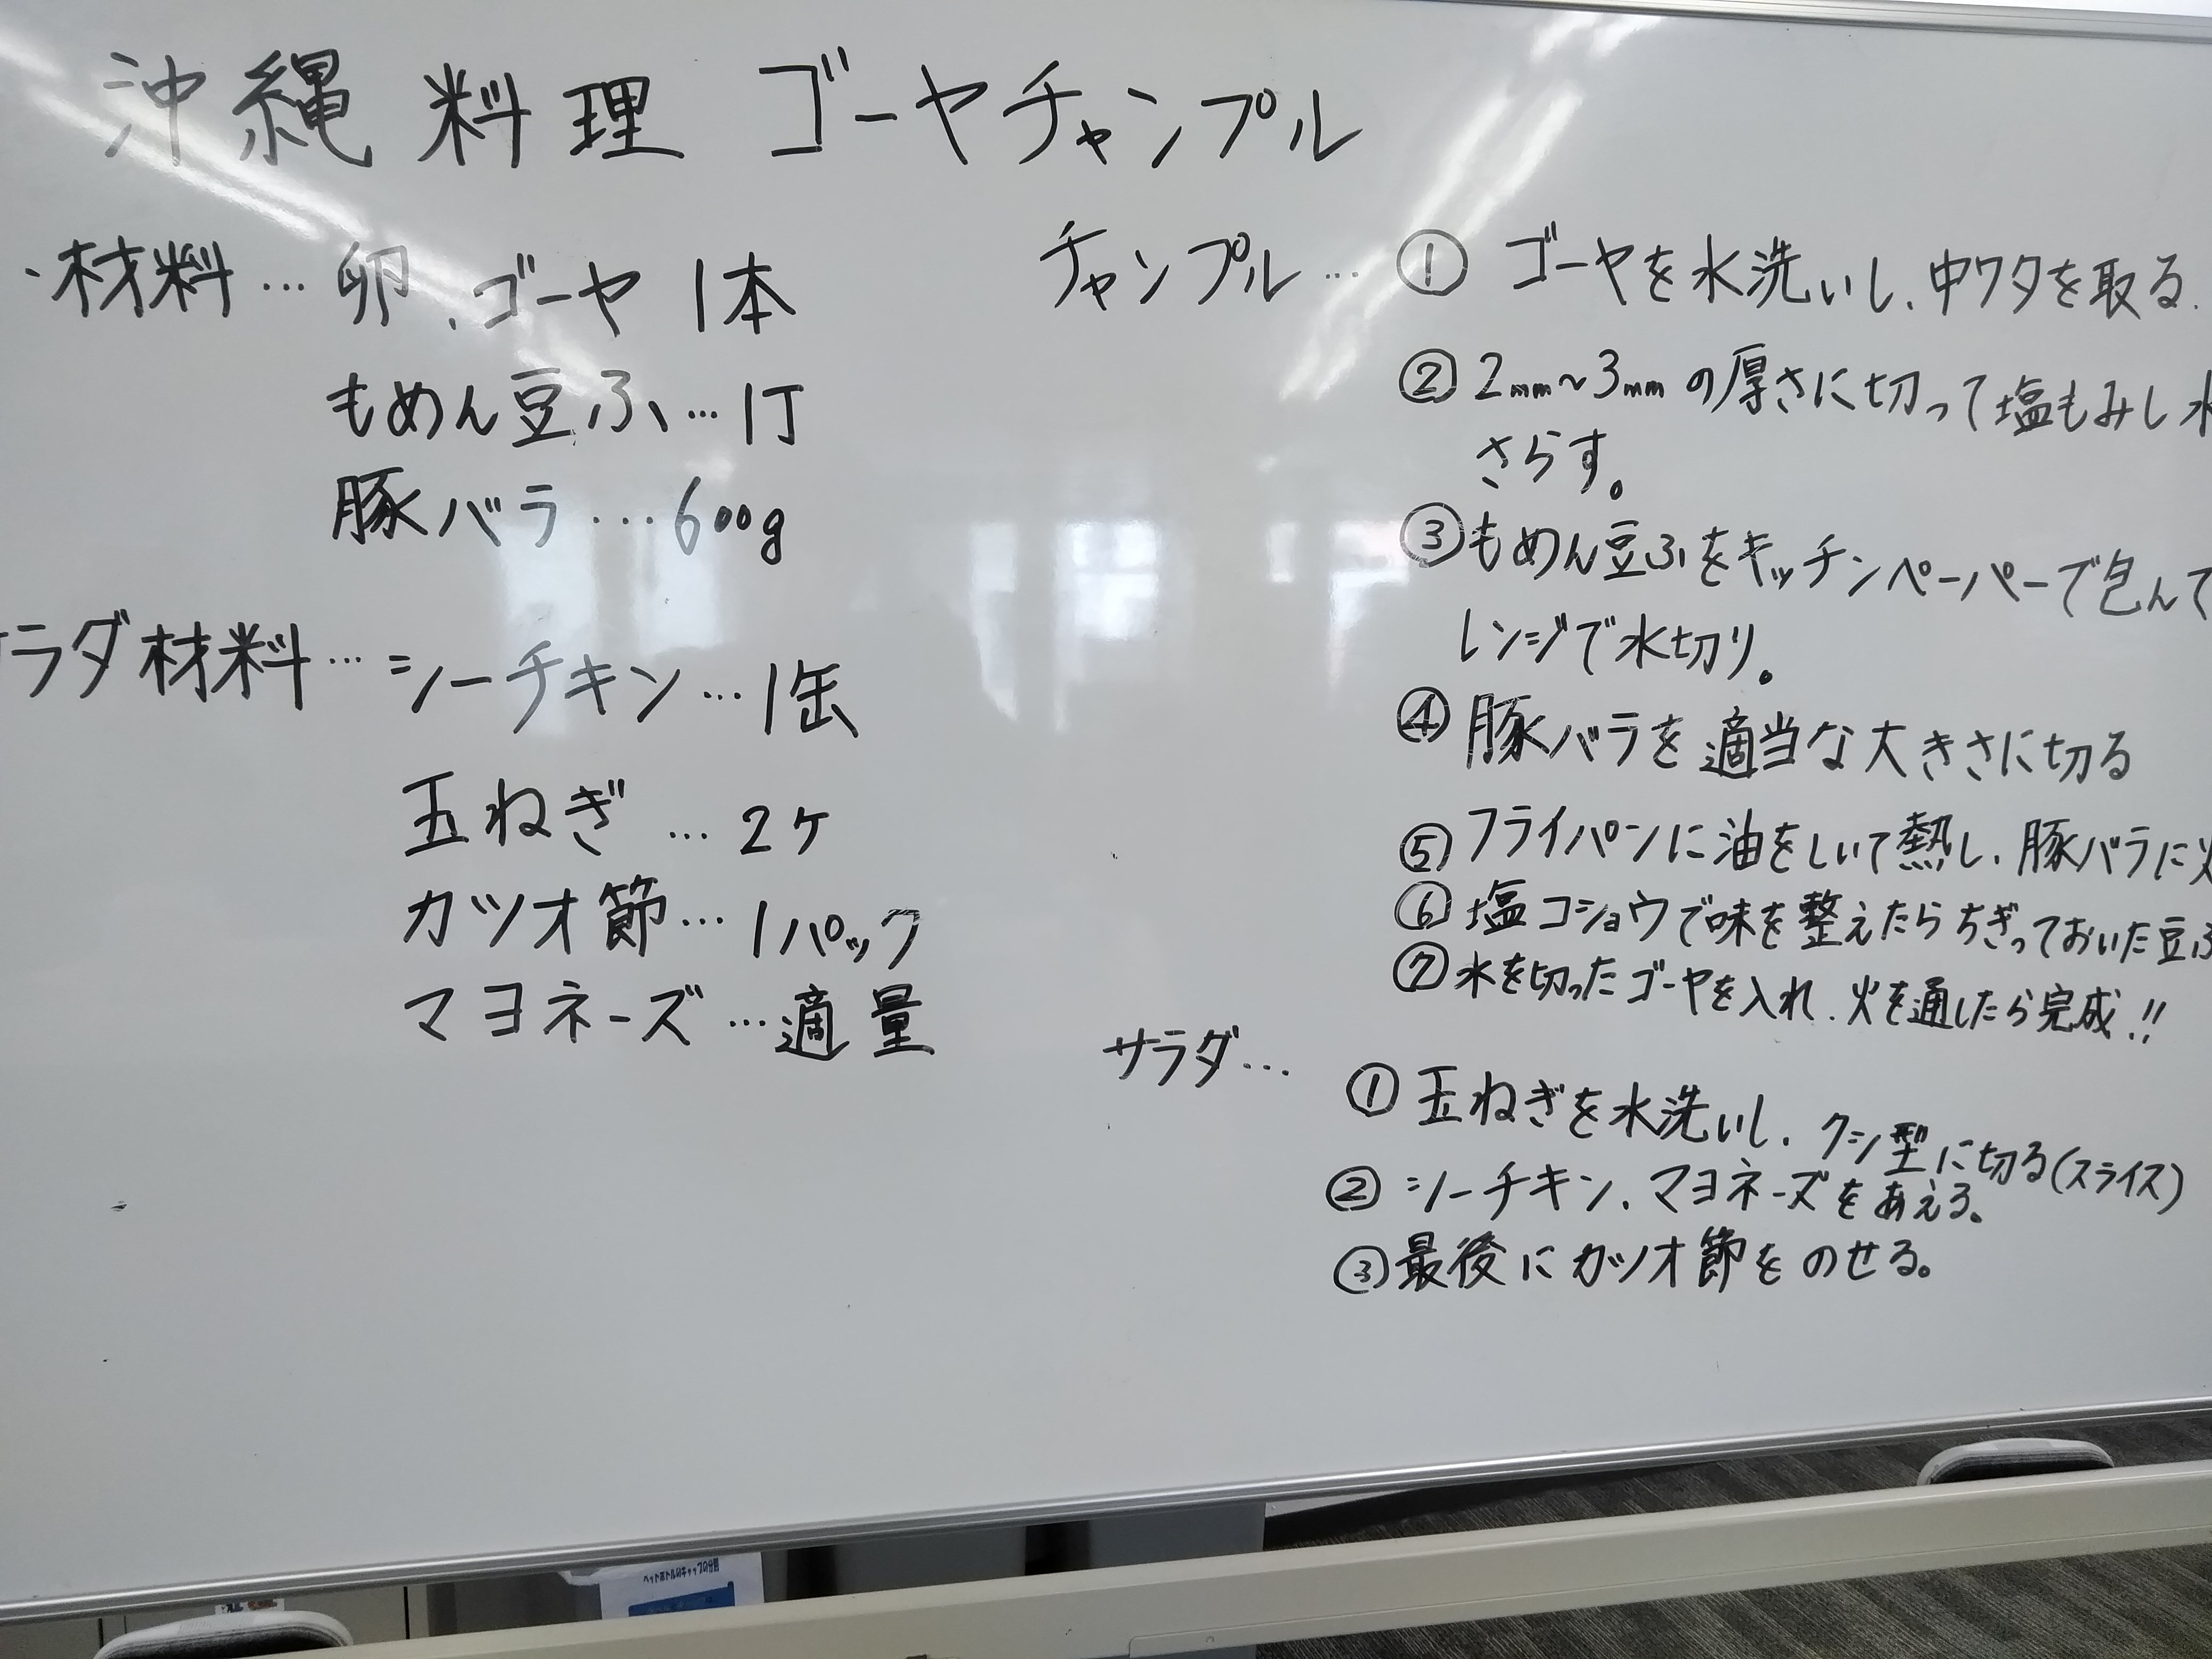 沖縄料理 ゴーヤチャンプル
・材料…卵、ゴーヤ 1本
もめん豆ふ…1丁
豚バラ…600g
ラダ材料…シーチキン…1缶
玉ねぎ…2ケ
カツオ節…1パック
マヨネーズ…適量
チャンプル…① ゴーヤを水洗いし、中ワタを取る、
② 2mm~3mmの厚さに切って塩もみし水
さらす。
③ もめん豆ふをキッチンペーパーで包んで
レンジで水切り。
④ 豚バラを適当な大きさに切る
⑤ フライパンに油をしいて熱し、豚バラに火
⑥ 塩コショウで味を整えたらちぎっておいた豆ふ
⑦ 水を切ったゴーヤを入れ、火を通したら完成!!
サラダ…
① 玉ねぎを水洗いし、クシ型に切る(スライス)
② シーチキン、マヨネーズをあえる。
③ 最後にカツオ節をのせる。
ペットボトルのキャップの分別